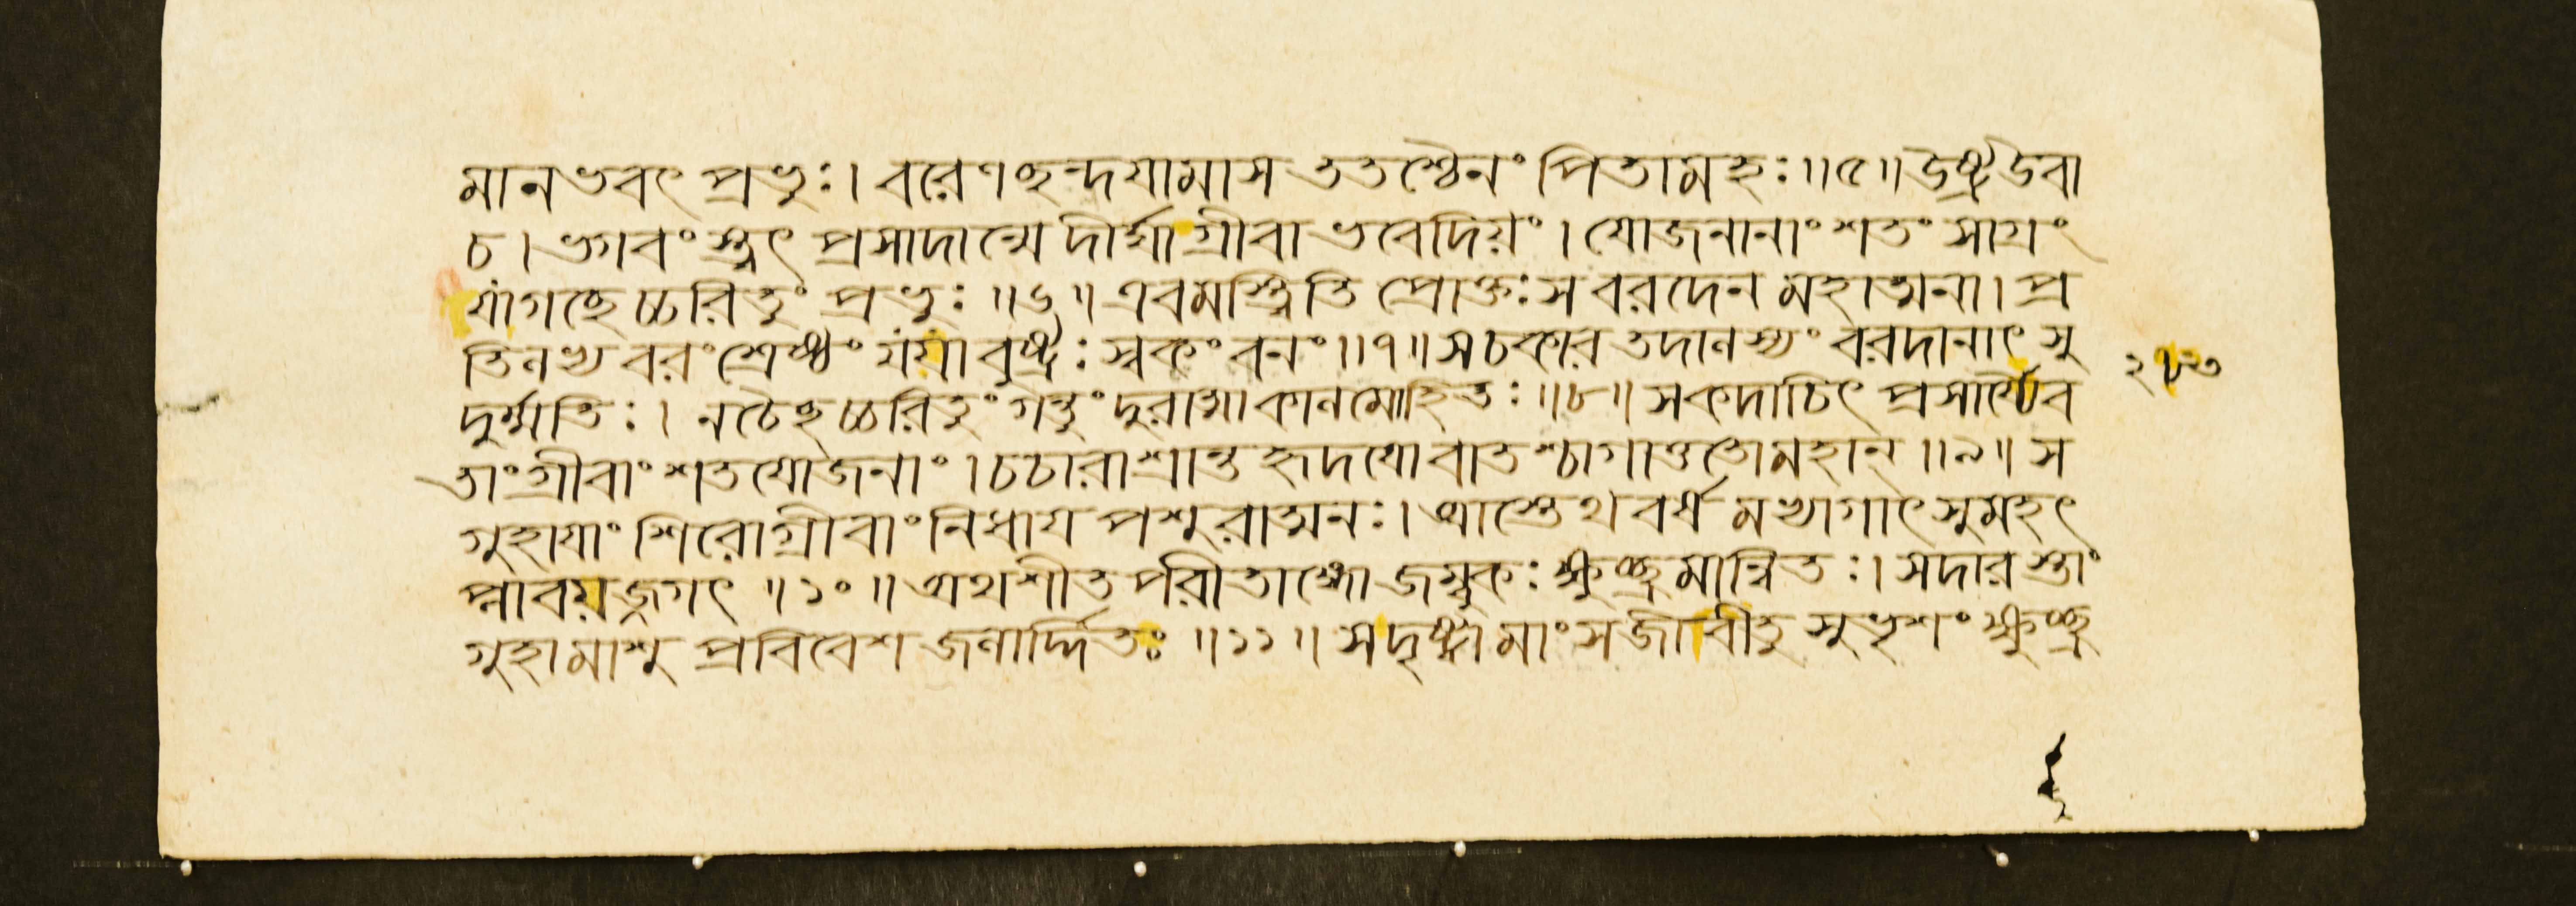 মানভবৎ প্রভুঃ। বরেণ ছন্দয়ামাস ততশ্চৈনং পিতামহঃ॥৫॥উষ্ট্রউবা
চ। ভগবংস্ত্বৎ প্রসাদান্মে দীর্ঘা গ্রীবা ভবেদিয়ং। যোজনানাং শতং সাগ্রং
যাগচ্ছেচ্চরিতুং প্রভুঃ॥৬॥এবমস্ত্বিতি প্রোক্তঃ স বরদেন মহাত্মনা। প্র
তিলভ্য বরং শ্রেষ্ঠং যযা বুষ্ট্রঃ স্বকং বনং॥৭॥সচকার তদালস্যং বরদানাৎ সু
দুর্ম্মতিঃ। নচৈচ্ছচ্চরিতুং গন্তুং দুরাত্মা কালমোহিতঃ॥৮॥সকদাচিৎ প্রসার্য্যৈব
তাং গ্রীবাং শতযোজনাং। চচারাশ্রান্ত হৃদযো বাতশ্চাগাত্ততোমহান্॥৯॥স
গুহাযাং শিরোগ্রীবাং নিধায পশুরাত্মনঃ। আস্তেথ বর্ষমভ্যাগাৎ সুমহৎ
প্লাবয়জ্জগৎ॥১০॥অথ শীত পরীতাঙ্গো জম্বুকঃ ক্ষুচ্ছ্রমান্বিতঃ। সদারস্তাং
গুহামাশু প্রবিবেশ জলার্দ্দিতঃ॥১১॥সদৃষ্ট্বা মাংসজীবীতু সুভৃশং ক্ষুচ্ছ্র